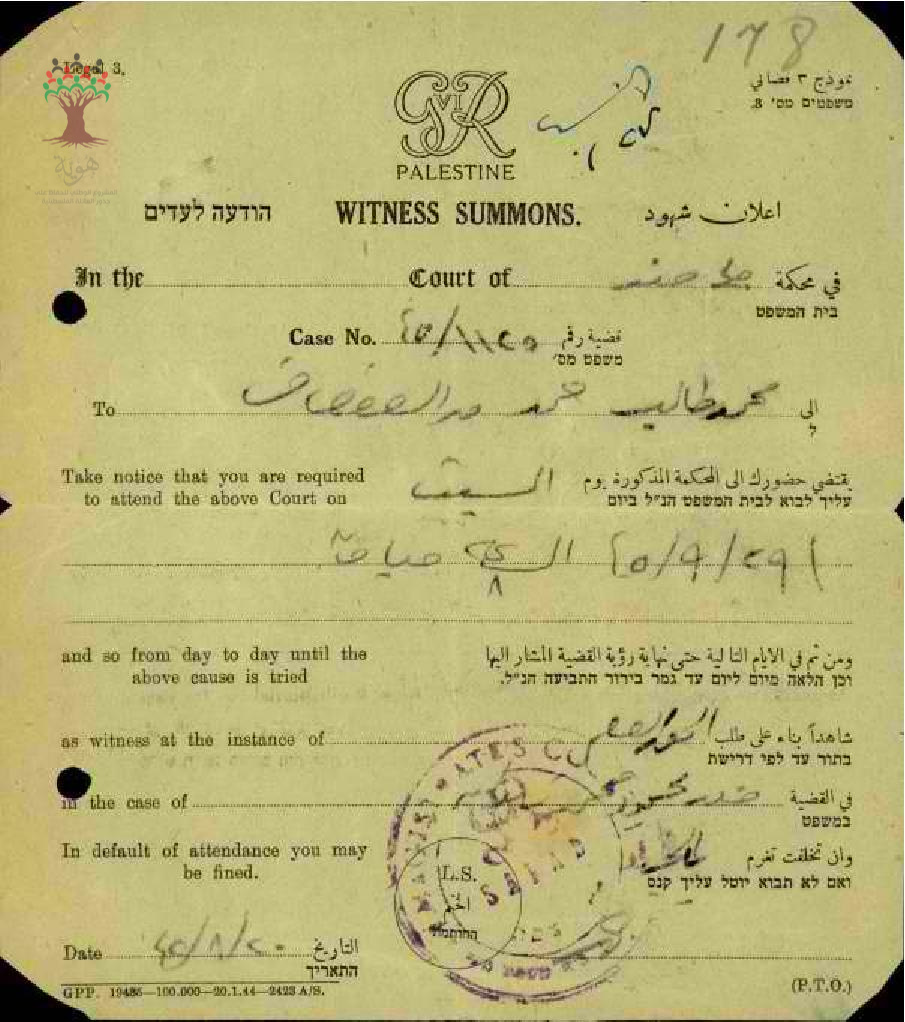 178
Legal 3.
نموذج ٣ قضائي
משפטים מס' 3.
هوية
GRVI
PALESTINE
הודעה לעדים WITNESS SUMMONS. اعلان شهود
In the Court of في محكمة
בית המשפט
Case No. ٤٥/١١٢٥ قضية رقم
משפט מס'
To محمد طالب الى
ל
Take notice that you are required السبت يقتضي حضورك الى المحكمة المذكورة يوم
to attend the above Court on עליך לבוא לבית המשפט הנ"ל ביום
٤٥/٩/٢٩ الساعة ٨ صباحا
and so from day to day until the ومن ثم في الايام التالية حتى نهاية رؤية القضية المشار اليها
above cause is tried וכן הלאה מיום ליום עד גמר בירור התביעה הנ"ל.
as witness at the instance of شاهداً بناء على طلب
בתור עד לפי דרישת
in the case of في القضية
במשפט
In default of attendance you may وان تخلفت تغرم
be fined. ואם לא תבוא יוטל עליך קנס
MAGISTRATES CO
SAFAD
L.S.
الختم
החותמת
Date ٤٥/٨/٢٠ التاريخ
התאריך
GPP. 19485—100.000—20.1.44—2423 A/S.
(P.T.O.)